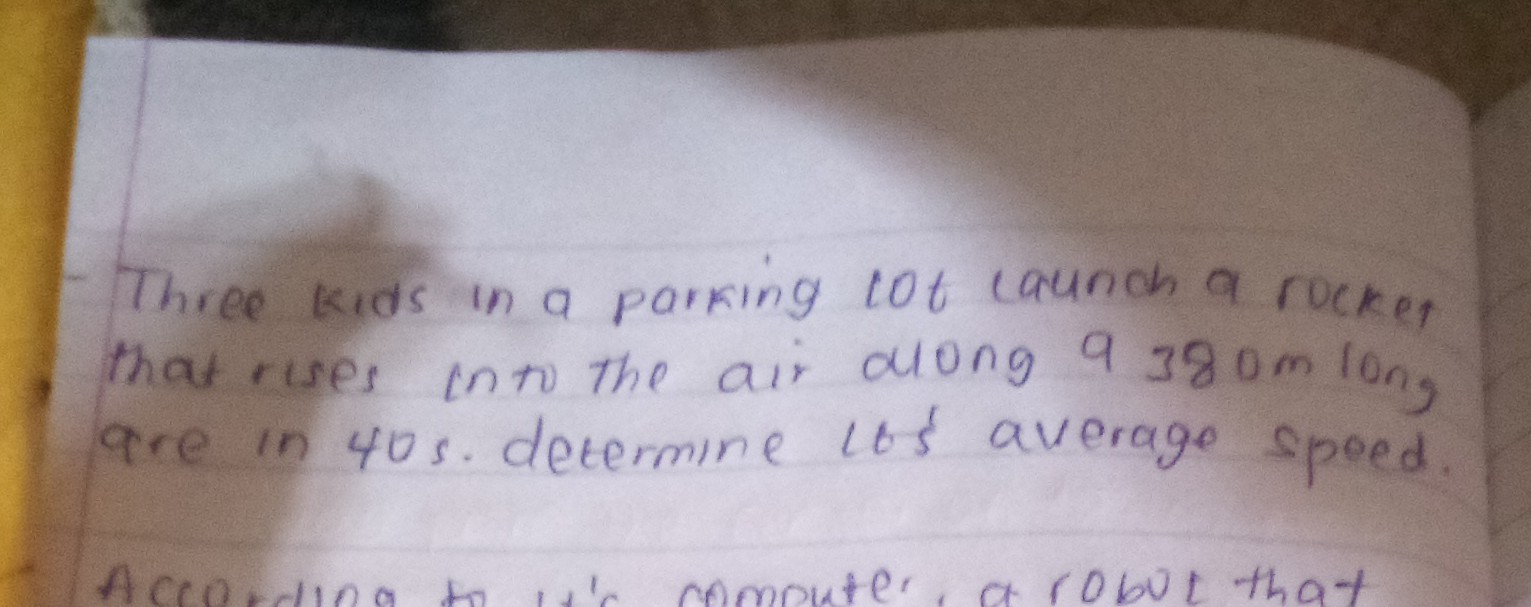 - Three kids in a parking lot launch a rocket
that rises into the air along a 380m long
are in 40s. determine its average speed.
According to it's computer, a robot that